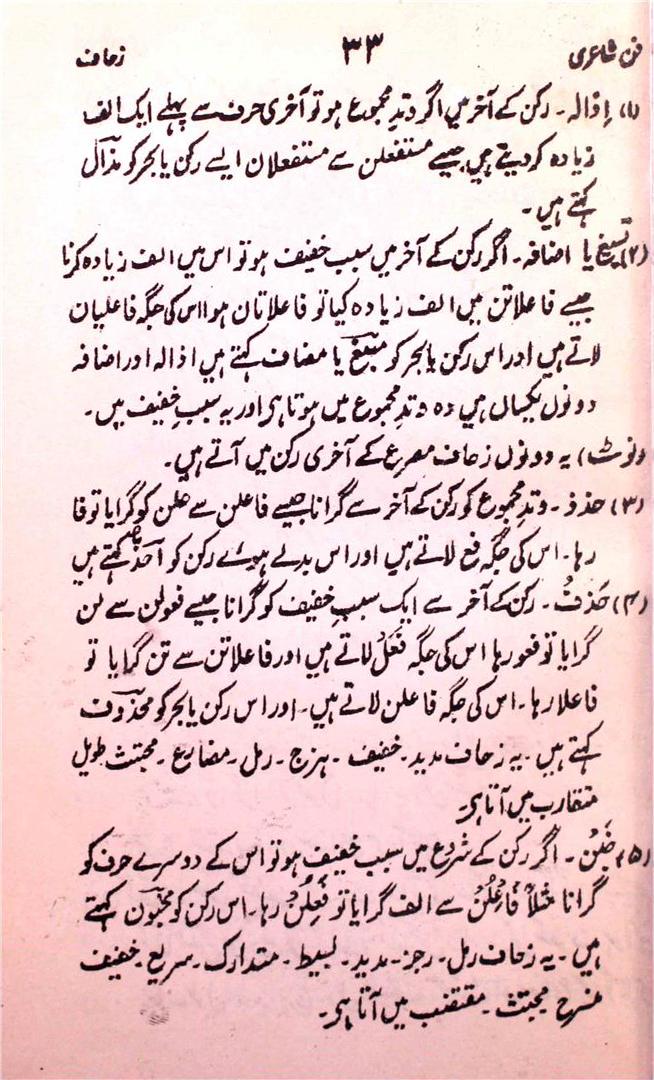 فن شاعری ۳۳ زحاف
(۱) اِذالہ۔ رکن کے آخر میں اگر وتدِ مجموع ہو تو آخری حرف سے پہلے ایک الف
زیادہ کر دیتے ہیں جیسے مستفعلن سے مستفعلان ایسے رکن یا بحر کو مذال
کہتے ہیں۔
(۲) تسبیغ یا اضافہ۔ اگر رکن کے آخر میں سبب خفیف ہو تو اس میں الف زیادہ کرنا
جیسے فاعلاتن میں الف زیادہ کیا تو فاعلاتان ہوا اس کی جگہ فاعلیان
لاتے ہیں اور اس رکن یا بحر کو مسبغ یا مضاف کہتے ہیں اذالہ اور اضافہ
دونوں یکساں ہیں وہ وتدِ مجموع میں ہوتا ہی اور یہ سببِ خفیف میں۔
(نوٹ) یہ دونوں زحاف مصرع کے آخری رکن میں آتے ہیں۔
(۳) حذذ۔ وتدِ مجموع کو رکن کے آخر سے گرانا جیسے فاعلن سے علن کو گرایا تو فا
رہا۔ اس کی جگہ فع لاتے ہیں اور اس بدلے ہوئے رکن کو احذ کہتے ہیں
(۴) حَذف۔ رکن کے آخر سے ایک سببِ خفیف کو گرانا جیسے فعولن سے لن
گرایا تو فعو رہا اس کی جگہ فَعَلْ لاتے ہیں اور فاعلاتن سے تن گرایا تو
فاعلا رہا۔ اس کی جگہ فاعلن لاتے ہیں۔ اور اس رکن یا بحر کو محذوف
کہتے ہیں۔ یہ زحاف مدید۔ خفیف۔ ہزج۔ رمل۔ مضارع۔ مجتث طویل
متقارب میں آتا ہی۔
(۵) خَبْن۔ اگر رکن کے شروع میں سبب خفیف ہو تو اس کے دوسرے حرف کو
گرانا مثلاً فَاعِلُنْ سے الف گرایا تو فَعِلُنْ رہا۔ اس رکن کو مخبون کہتے
ہیں۔ یہ زحاف رمل۔ رجز۔ مدید۔ بسیط۔ متدارک۔ سریع۔ خفیف
منسرح مجتث۔ مقتضب میں آتا ہی۔